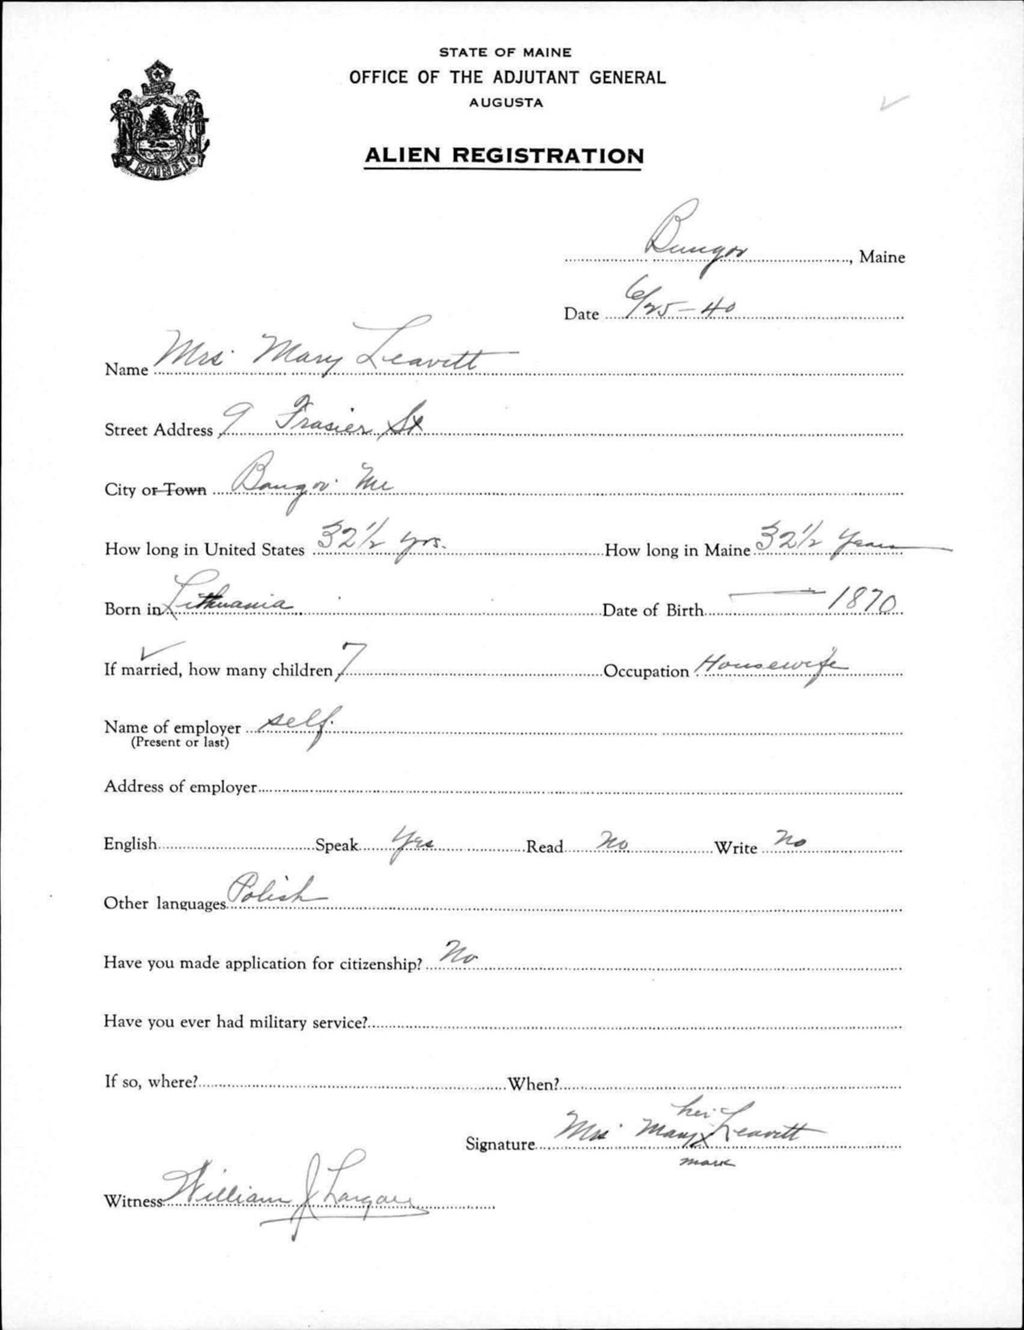 STATE OF MAINE
OFFICE OF THE ADJUTANT GENERAL
AUGUSTA
ALIEN REGISTRATION
MAINE
Bangor, Maine
Date 6/25-40
Name Mrs. Mary Leavitt
Street Address 9 Frasier St
City or Town Bangor Me
How long in United States 32 1/2 yrs. How long in Maine 32 1/2 Years
Born in Lithuania Date of Birth — 1870
If married, how many children 7 Occupation Housewife
Name of employer self.
(Present or last)
Address of employer
English Speak Yes Read No Write No
Other languages Polish
Have you made application for citizenship? No
Have you ever had military service?
If so, where? When?
her
Signature Mrs. Mary X Leavitt
mark
Witness William J